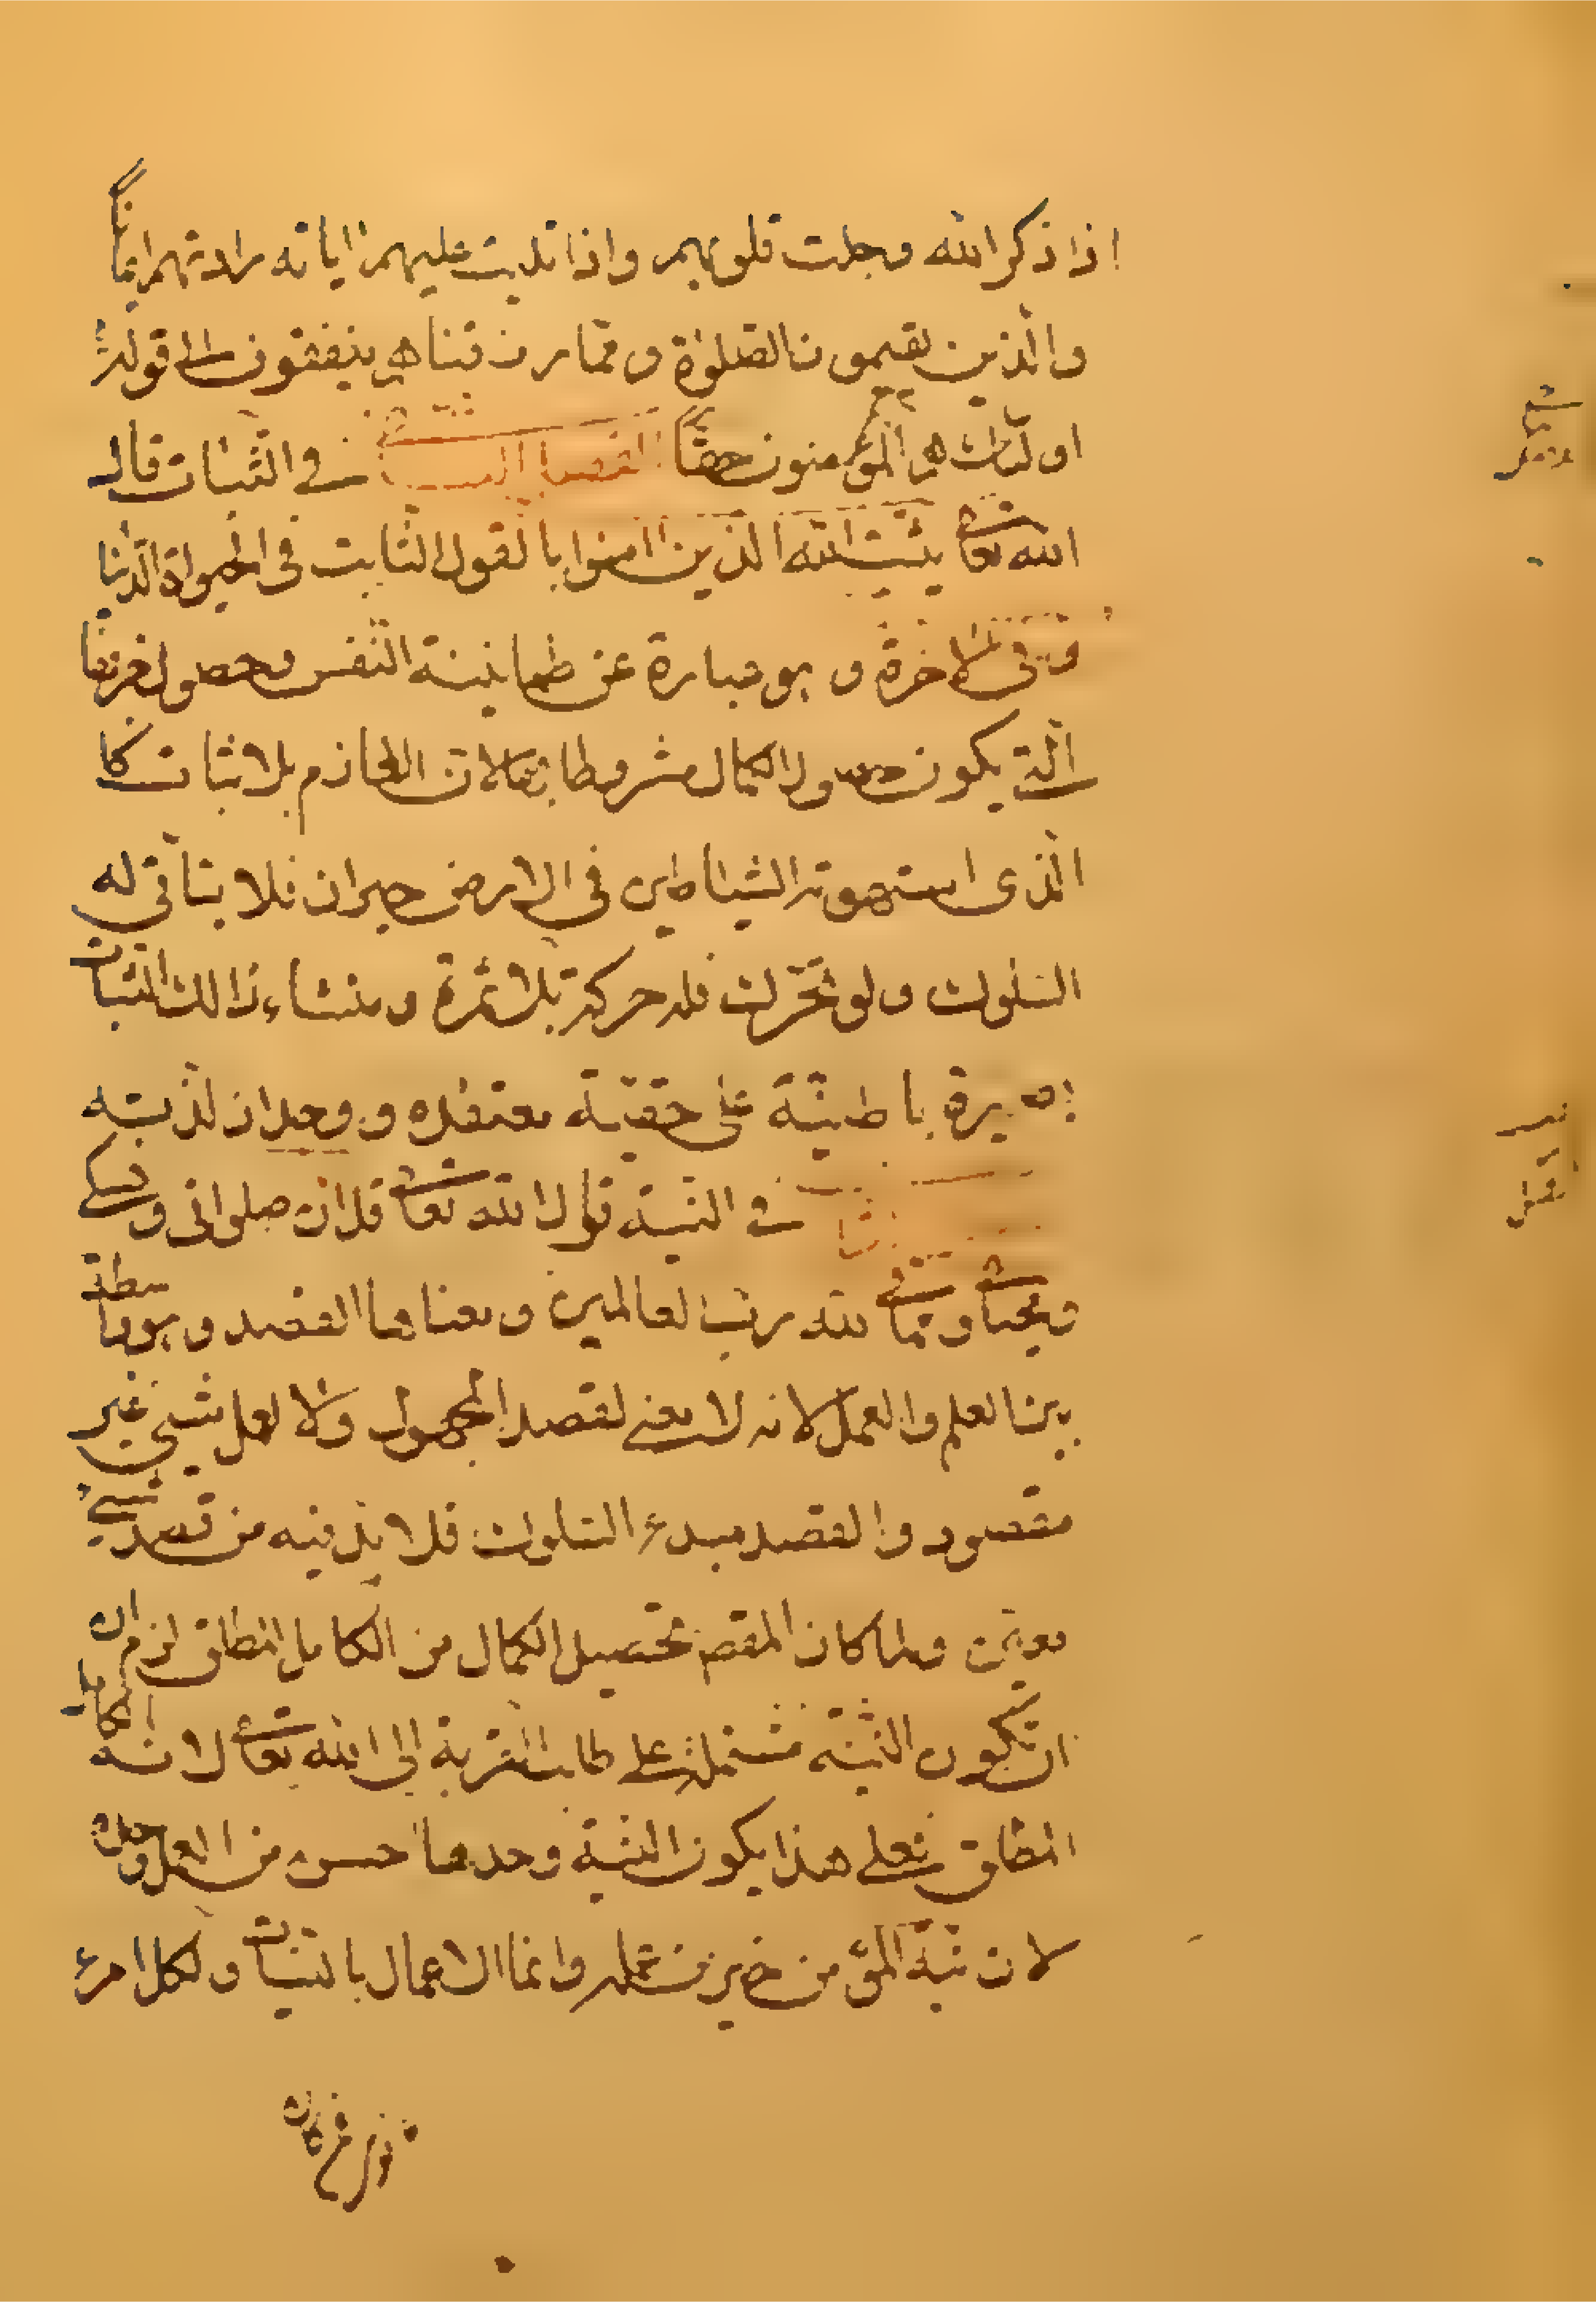 اذا ذكر الله وجلت قلوبهم واذا تليت عليهم اياته زادتهم ايمانًا
والّذين يقيمون الصلوٰة وممّا رزقناهم ينفقون الى قوله
اولٰئك هم المؤمنون حقّاً الفصل في الثّبات قال
الله تعالى يثبت الله الذين امنوا بالقول الثّابت فى الحيوة الدّنيا
وفى الاخرة و هو عبارة عن طمانينة النّفس وحصول
الّتى يكون حصول الكمال مشروطا بها لان الجازم بلا ثبات كا
الّذى استهوته الشياطين فى الارض حيران فلا يتأتى له
السّلوك ولو تحرّك فله حركة بلا ثمرة ومنشاء ذالك الثّبات
بصيرة باطنيّة على حقيّة معتقده ووجدان لذّيته
في النّية قال الله تعالى قل ان صلواتى ونسكى
ومحياى ومماتى لله ربّ العالمين ومعناها القصد وهو واسطة
بين العلم والعمل لانه لا معنى لقصد المجهول ولا لعمل شيئ غير
مقصود والقصد مبدء السّلوك فلا بدّ فيه من قصد شيئ
معيّن ولما كان المقصد تحصيل الكمال من الكامل المطلق لزم
ان تكون النّية مشتملة على طلب القربة الى الله تعالى لانه الكامل
المطلق فعلى هذا يكون النية وحدها احسن من العمل وحده
لان نية المؤمن خير من عمله وانما الاعمال بالنّيات ولكل امرء